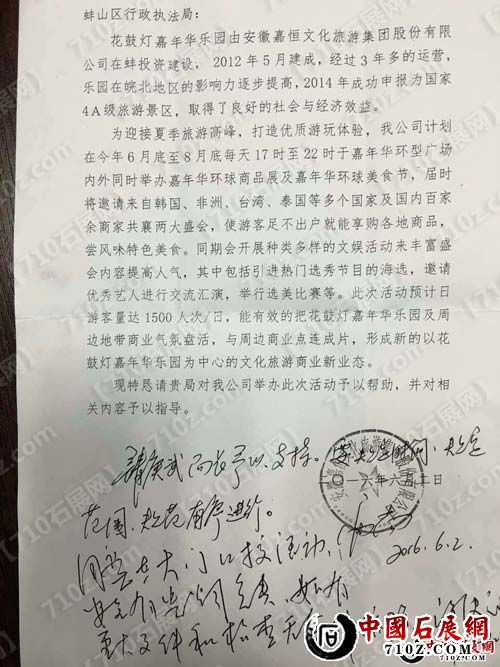 蚌山区行政执法局：
花鼓灯嘉年华乐园由安徽嘉恒文化旅游集团股份有限
公司在蚌投资建设，2012年5月建成，经过3年多的运营，
乐园在皖北地区的影响力逐步提高，2014年成功申报为国家
4A级旅游景区，取得了良好的社会与经济效益。
为迎接夏季旅游高峰，打造优质游玩体验，我公司计划
在今年6月底至8月底每天17时至22时于嘉年华环型广场
内外同时举办嘉年华环球商品展及嘉年华环球美食节，届时
将邀请来自韩国、非洲、台湾、泰国等多个国家及国内百家
余商家共襄两大盛会，使游客足不出户就能享购各地商品，
尝风味特色美食。同期会开展种类多样的文娱活动来丰富盛
会内容提高人气，其中包括引进热门选秀节目的海选，邀请
优秀艺人进行交流汇演，举行选美比赛等。此次活动预计日
游客量达1500人次/日，能有效的把花鼓灯嘉年华乐园及周
边地带商业气氛盘活，与周边商业点连成片，形成新的以花
鼓灯嘉年华乐园为中心的文化旅游商业新业态。
现特恳请贵局对我公司举办此次活动予以帮助，并对相
关内容予以指导。
予以支持。
二〇一六年六月二日
范围，规范有序进行。
2016.6.2
同意在大门口搞活动，
中國石展网
710Z.COM
【710石展网】
7102.com